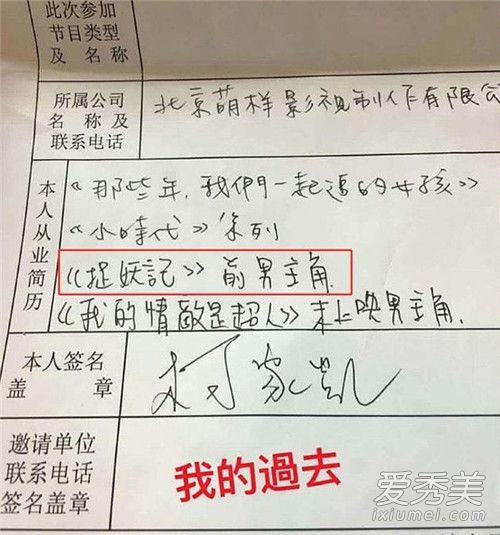 此次参加
节目类型
及 名 称
所属公司
名 称 及
联系电话
北京萌样影視制作有限公
本人从业简历
《那些年,我們一起追的女孩》
《小時代》系列
《捉妖記》前男主角.
《我的情敵是超人》未上映男主角.
本人签名
盖 章
柯家凯
邀请单位
联系电话
签名盖章
我的過去
爱秀美
ixiumei.com